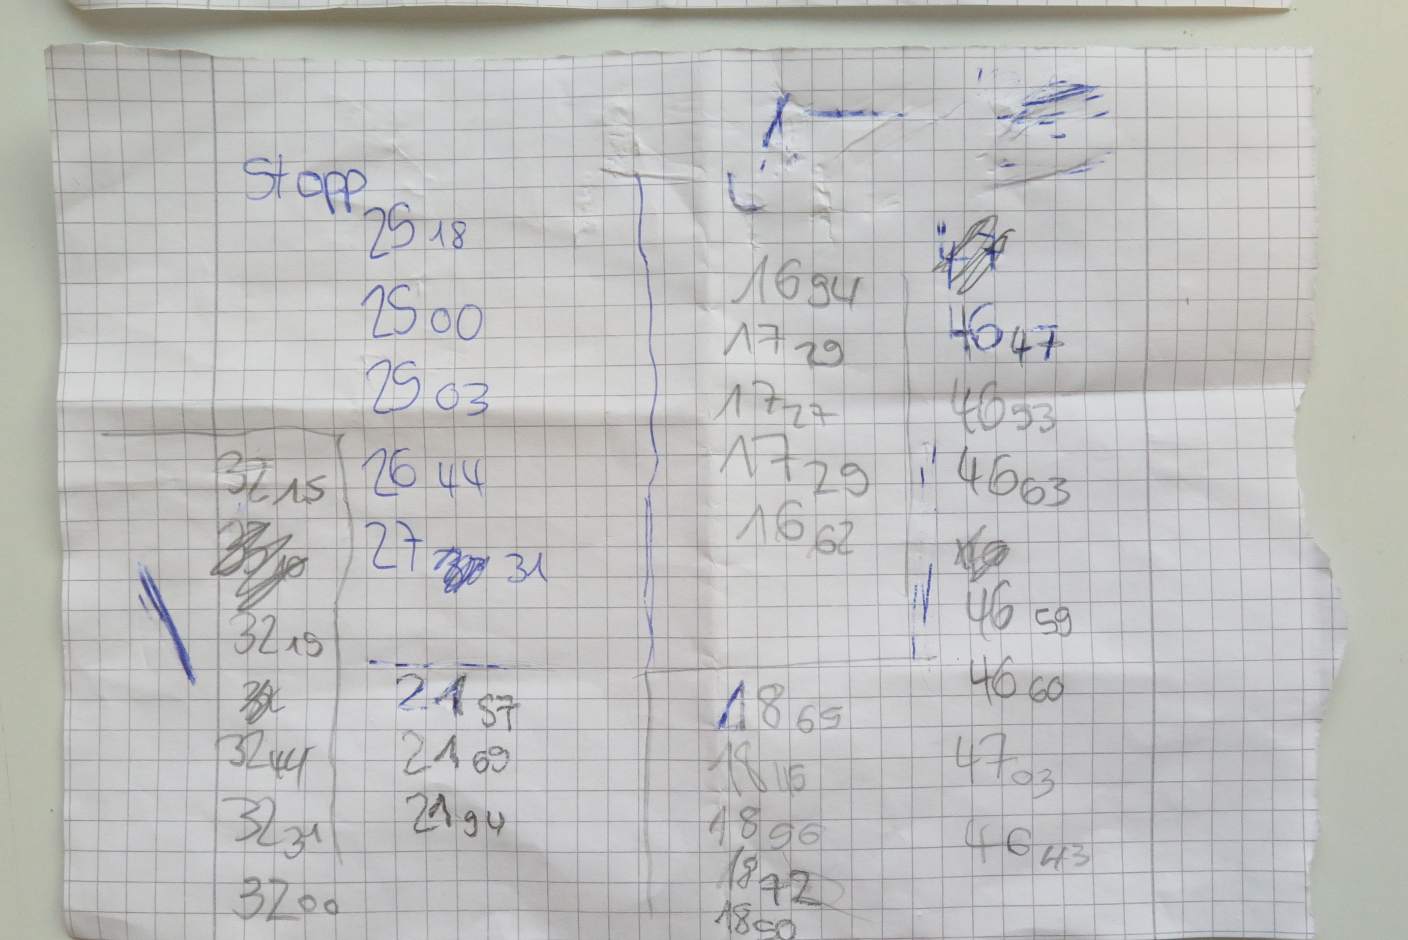 Stopp
25 18
25 00
25 03
26 44
27 31
32 15
32 19
32 44
32 31
32 00
21 57
21 69
21 94
16 94
17 29
17 27
17 29
16 62
18 65
18 96
18 72
46 47
46 93
46 63
46 59
46 60
47 03
46 43